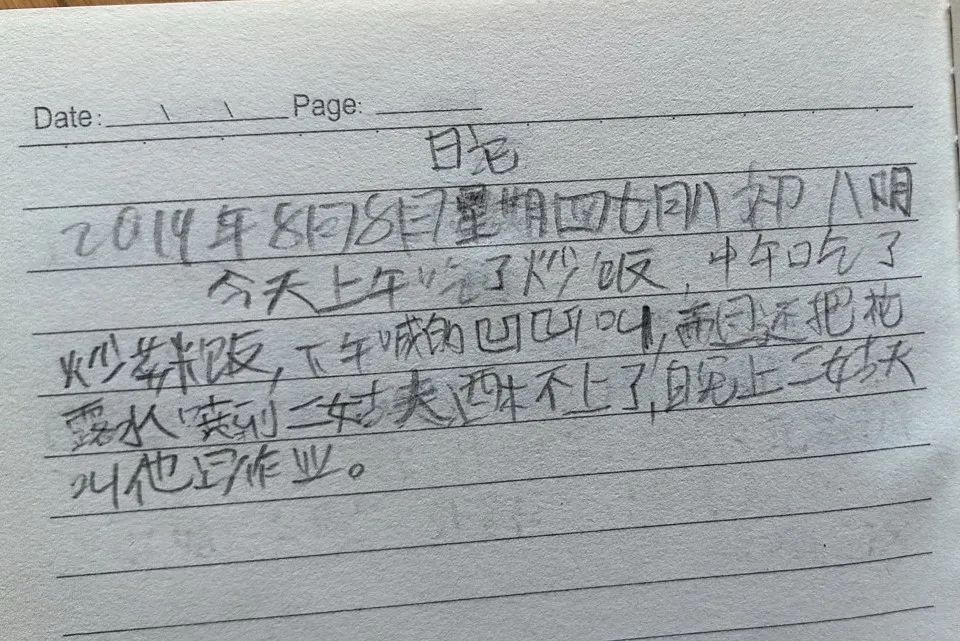 Date: \ \ Page:
日记
2019年8月8日星期四七月初八阴
今天上午吃了炒饭,中午吃了
炒米饭,下午喊的凹凹叫,还把花
露水喷到二姑夫西本不上了,自宪上二姑夫
叫他写作业。